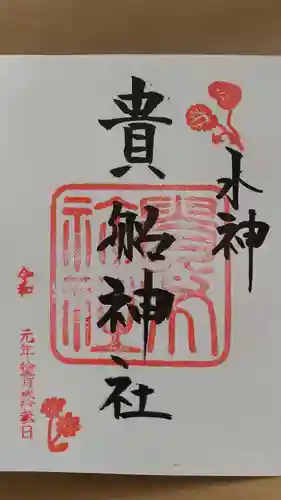 水神
貴船神社
令和
元年